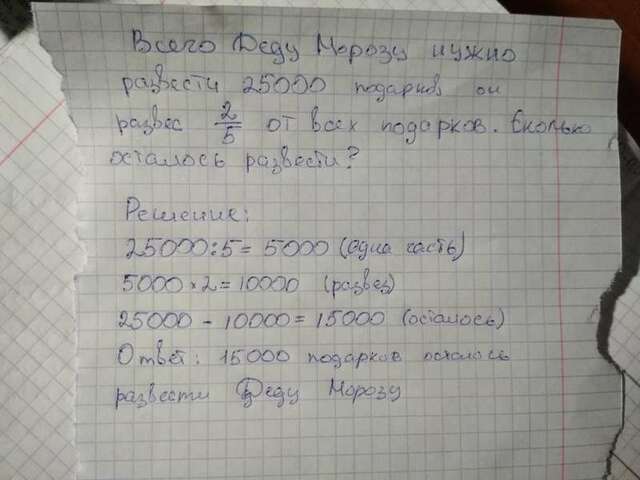 Всего Деду Морозу нужно
развести 25000 подарков он
развёс 2/5 от всех подарков. Сколько
осталось развести?
Решение:
25000:5=5000 (одна часть)
5000×2=10000 (развез)
25000-10000=15000 (осталось)
Ответ: 15000 подарков осталось
развести Деду Морозу